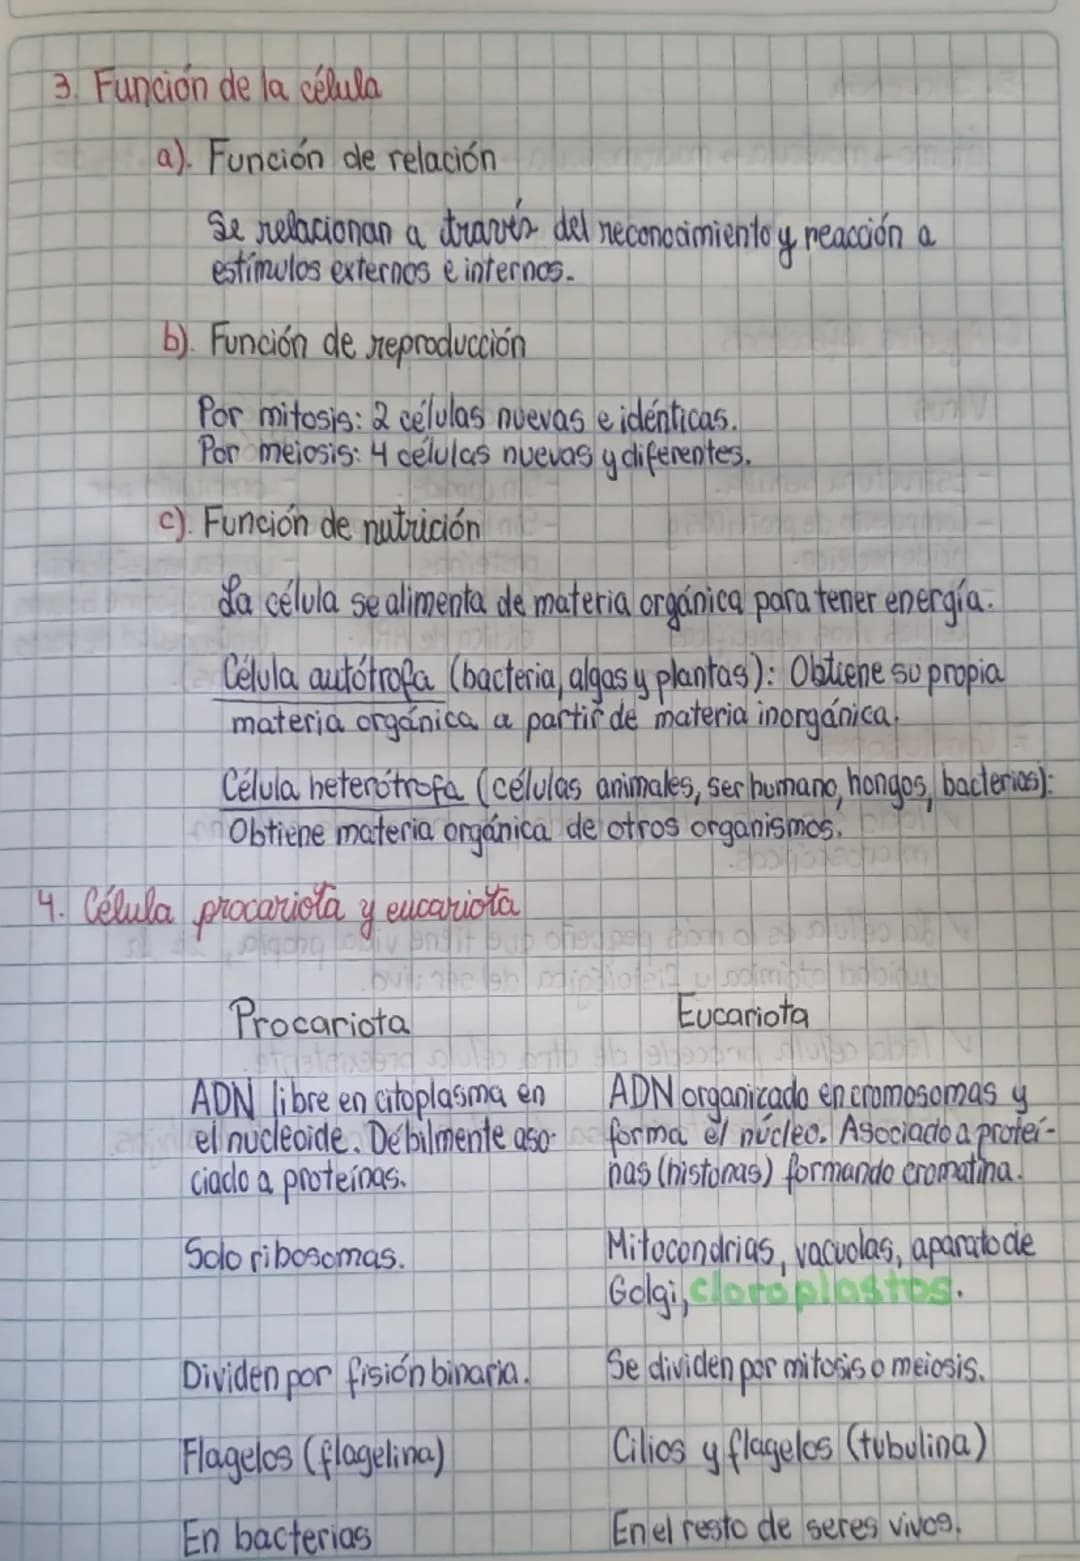 3. Función de la célula
a). Función de relación
Se relacionan a través del reconocimiento y reacción a
estímulos externos e internos.
b). Función de reproducción
Por mitosis: 2 células nuevas e idénticas.
Por meiosis: 4 células nuevas y diferentes.
c). Función de nutrición
La célula se alimenta de materia orgánica para tener energía.
Célula autótrofa (bacteria, algas y plantas): Obtiene su propia
materia orgánica a partir de materia inorgánica.
Célula heterótrofa (células animales, ser humano, hongos, bacterias):
Obtiene materia orgánica de otros organismos.
4. Célula procariota y eucariota
Procariota Eucariota
ADN libre en citoplasma en ADN organizado en cromosomas y
el nucleoide. Débilmente aso- forma el núcleo. Asociado a proteí-
ciado a proteínas. nas (histonas) formando cromatina.
Solo ribosomas. Mitocondrias, vacuolas, aparato de
Golgi, cloroplastos.
Dividen por fisión binaria. Se dividen por mitosis o meiosis.
Flagelos (flagelina) Cilios y flagelos (tubulina)
En bacterias En el resto de seres vivos.